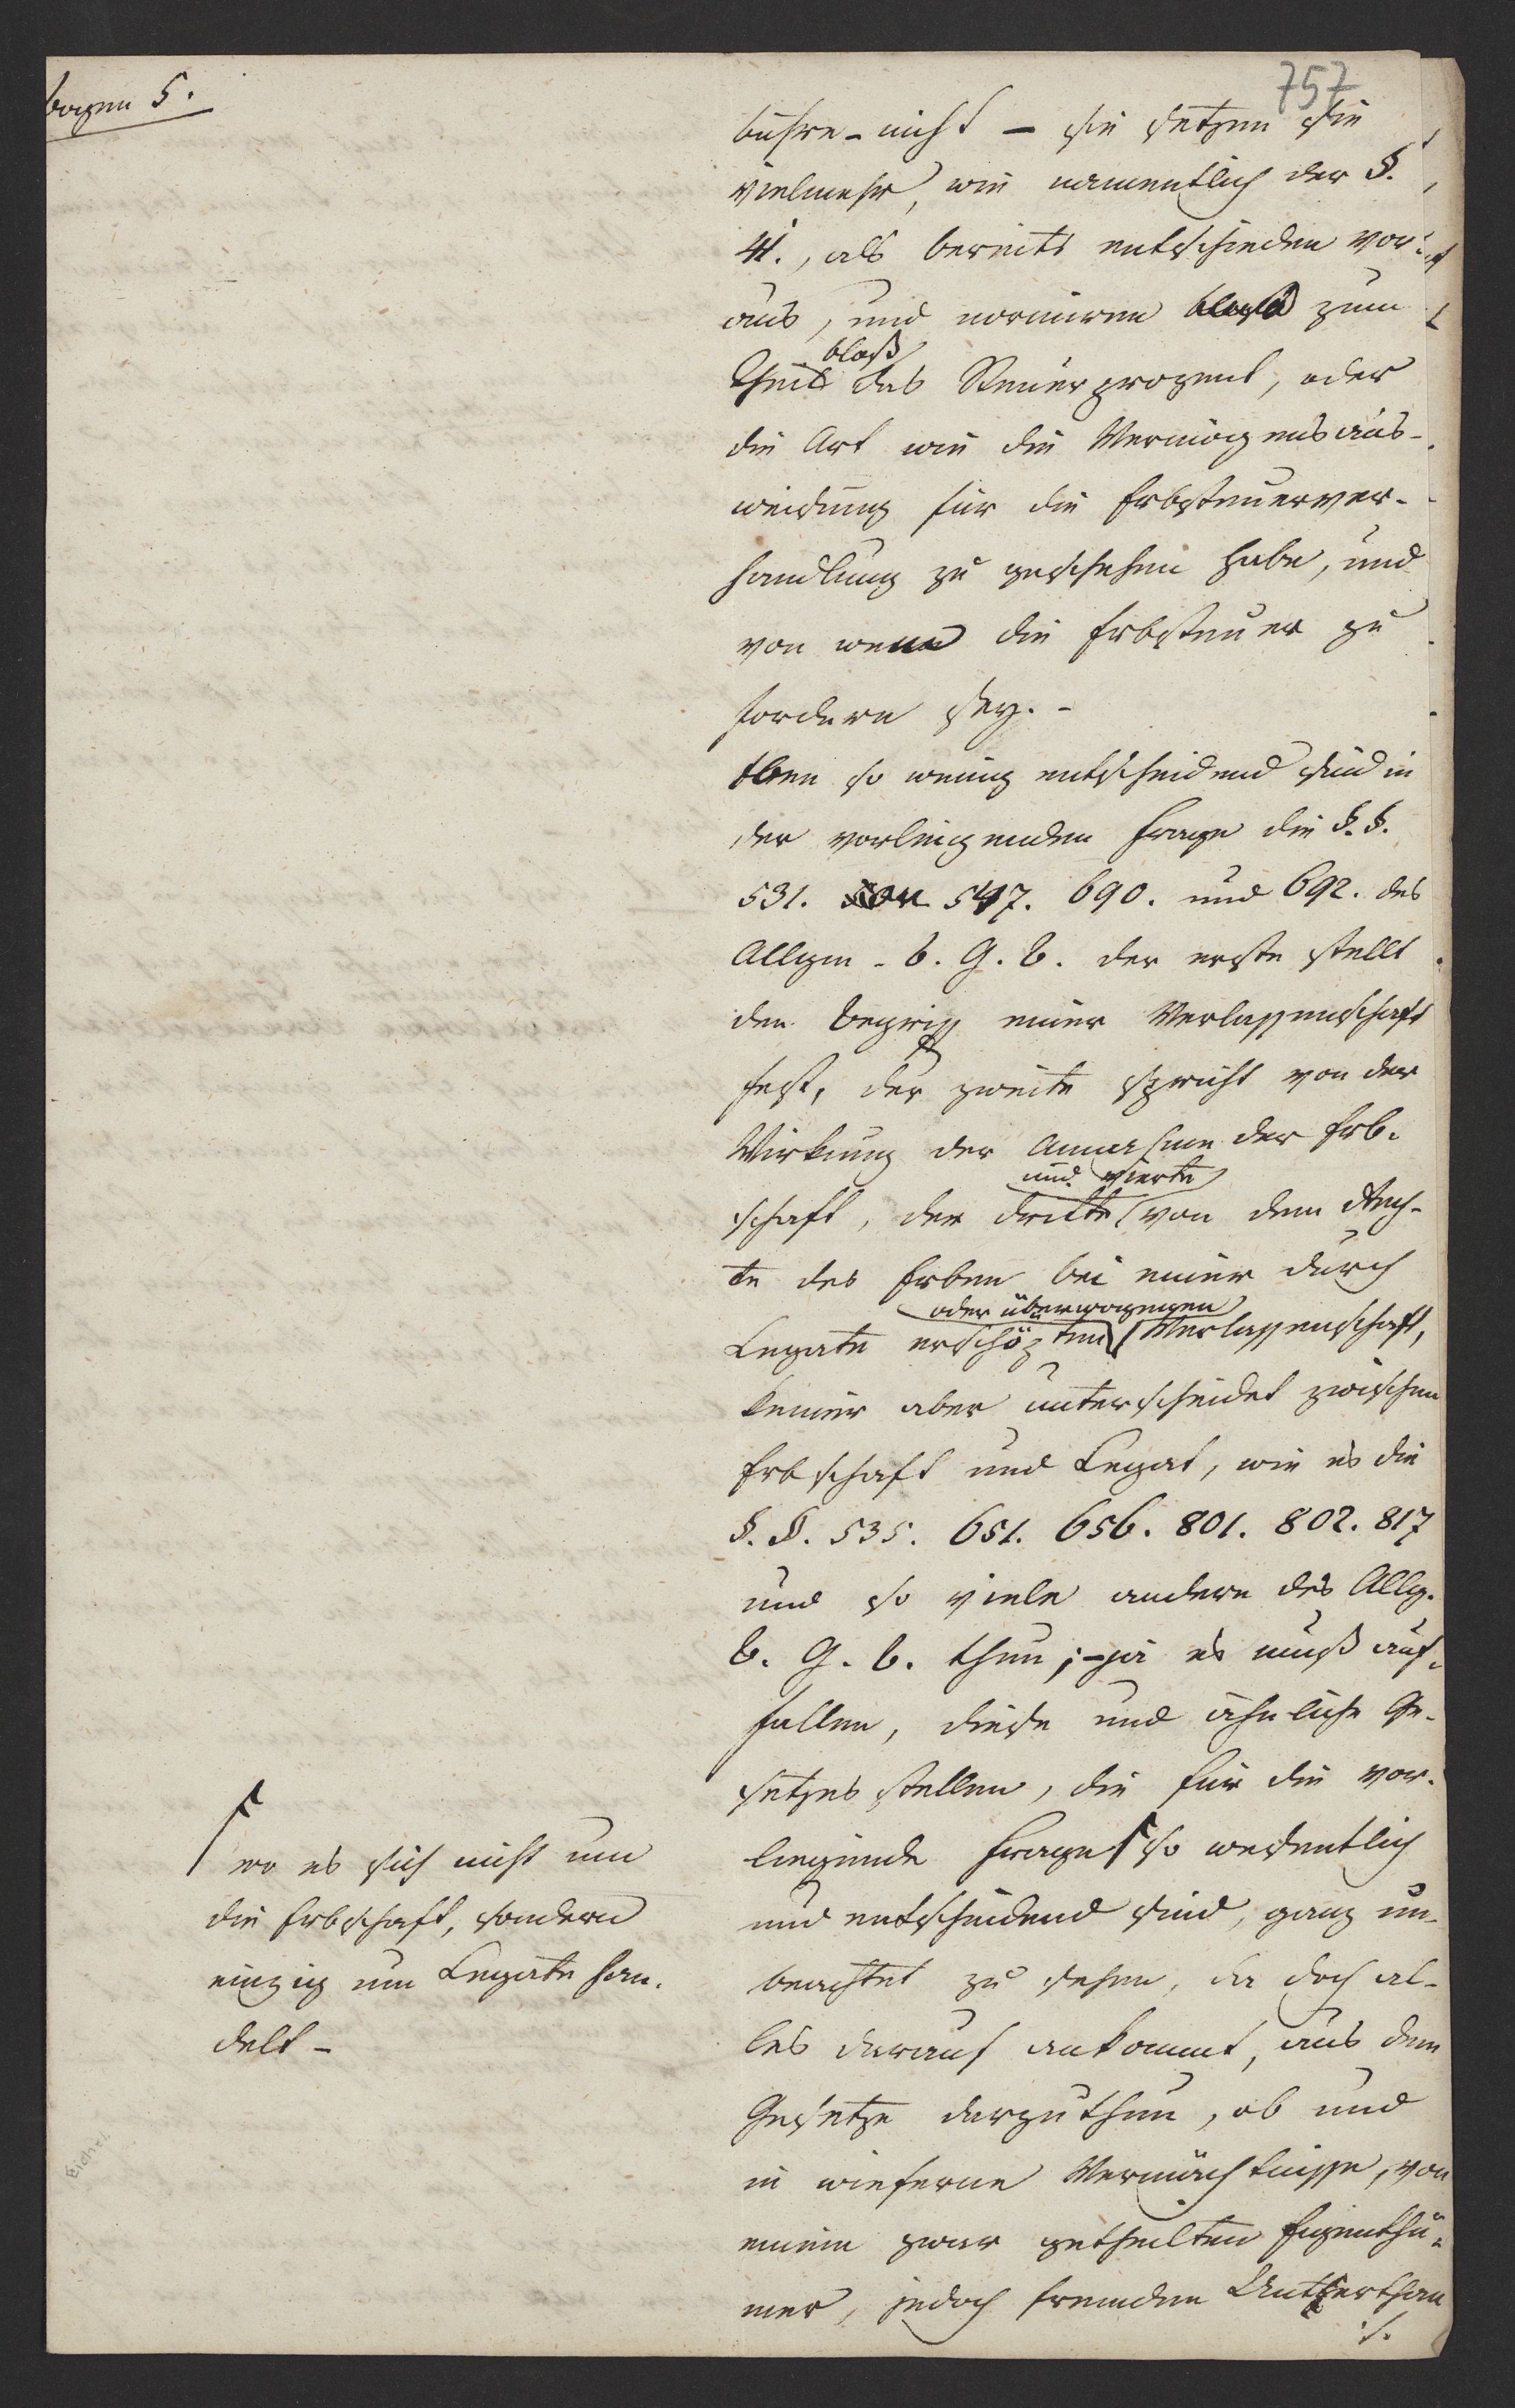 Bogen 5.
757
bühre - nicht - sie setzen sie
vielmehr, wie namentlich der §.
41., als bereits entschieden vor-
aus, und normiren zum
bloß
Theil das Steuerprozent, oder
die Art wie die Vermögensaus-
weisung für die Erbsteuerver-
handlung zu geschehen habe, und
von wem die Erbsteuer zu
fordern sey. -
Eben so wenig entscheidend sind in
der vorliegenden Frage die §.§.
531. 547. 690. und 692. des
Allgem. b. G. b. der erste stellt
den Begriff einer Verlassenschaft
fest, der zweite spricht von der
Wirkung der Annahme der Erb-
und vierte
schaft, der dritte von dem Rech-
te des Erben bei einer durch
oder überwogenen
Legate erschöpften Verlassenschaft,
keiner aber unterscheidet zwischen
Erbschaft und Legat, wie es die
§.§. 535. 651. 656. 801. 802. 817
und so viele andere des Allg.
b. G. b. thun; - ja es muß auf-
fallen, diese und ähnliche Ge-
setzesstellen, die für die vor-
liegende Frage so wesentlich
und entscheidend sind, ganz un-
beachtet zu sehen, da doch al-
les darauf ankommt, aus dem
Gesetze darzuthun, ob und
in wieferne Vermächtnisse, von
einem zwar getheilten Eigenthü-
mer, jedoch fremden Unterthan
./.
wo es sich nicht um
die Erbschaft, sondern
einzig um Legate han-
delt -